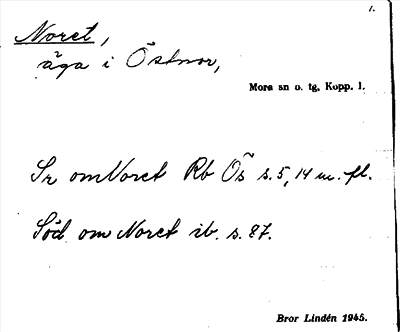 1.
Noret,
äga i Östnor,
Mora sn o. tg, Kopp. l.
Sr om Noret Rb Ös s. 5, 14 m. fl.
Söd om Noret ib. s. 87.
Bror Lindén 1945.